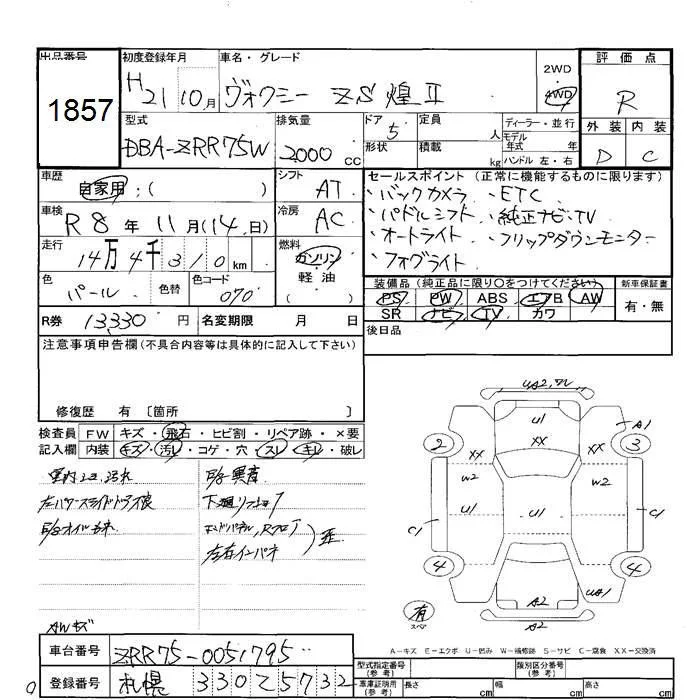 出品番号
1857
初度登録年月
H21 10月
車名・グレード
ヴォクシー ZS 煌Ⅱ
2WD
4WD
評価点
R
外装 内装
D C
型式
DBA-ZRR75W
排気量
2000 cc
ドア 5
形状
定員 人
積載 kg
ディーラー・並行
モデル年式 年式
ハンドル 左・右
車歴
自家用:( )
シフト
AT
車検
R8年 11月(14日)
冷房
AC
走行
14万4千310km
燃料
ガソリン
軽油
( )
色
パール
色替
色コード
070
セールスポイント (正常に機能するものに限ります)
・バックカメラ ・ETC
・パドルシフト ・純正ナビ・TV
・オートライト ・フリップダウンモニター
・フォグライト
装備品(純正品に限り○をつけてください)
PS PW ABS エアB AW
SR ナビ TV カワ
新車保証書
有・無
後日品
R券 13330円 名変期限 月 日
注意事項申告欄(不具合内容等は具体的に記入して下さい)
修復歴 有 〔箇所 〕
検査員 FW キズ・飛石・ヒビ割・リペア跡・×要
記入欄 内装 キズ・汚レ・コゲ・穴・スレ・キレ・破レ
E/G異音
室内 汚れ
左パワースライドドア不良
E/Gオイルモレ
左右インパネ
AWキズ
UA2,ワレ
U1
XX
A1
2
3
XX
XX
W2
W2
U1
U1
C1
C1
4
4
A2
UA1
A2
有
スペア
A-キズ E-エクボ U-凹み W-補修跡 S-サビ C-腐食 XX-交換済
車台番号 ZRR75-0051795
登録番号 札幌 330 Z 5732
型式指定番号
(参考)
類別区分番号
(参考)
車庫証明用
(参考)
長さ cm 幅 cm 高さ cm